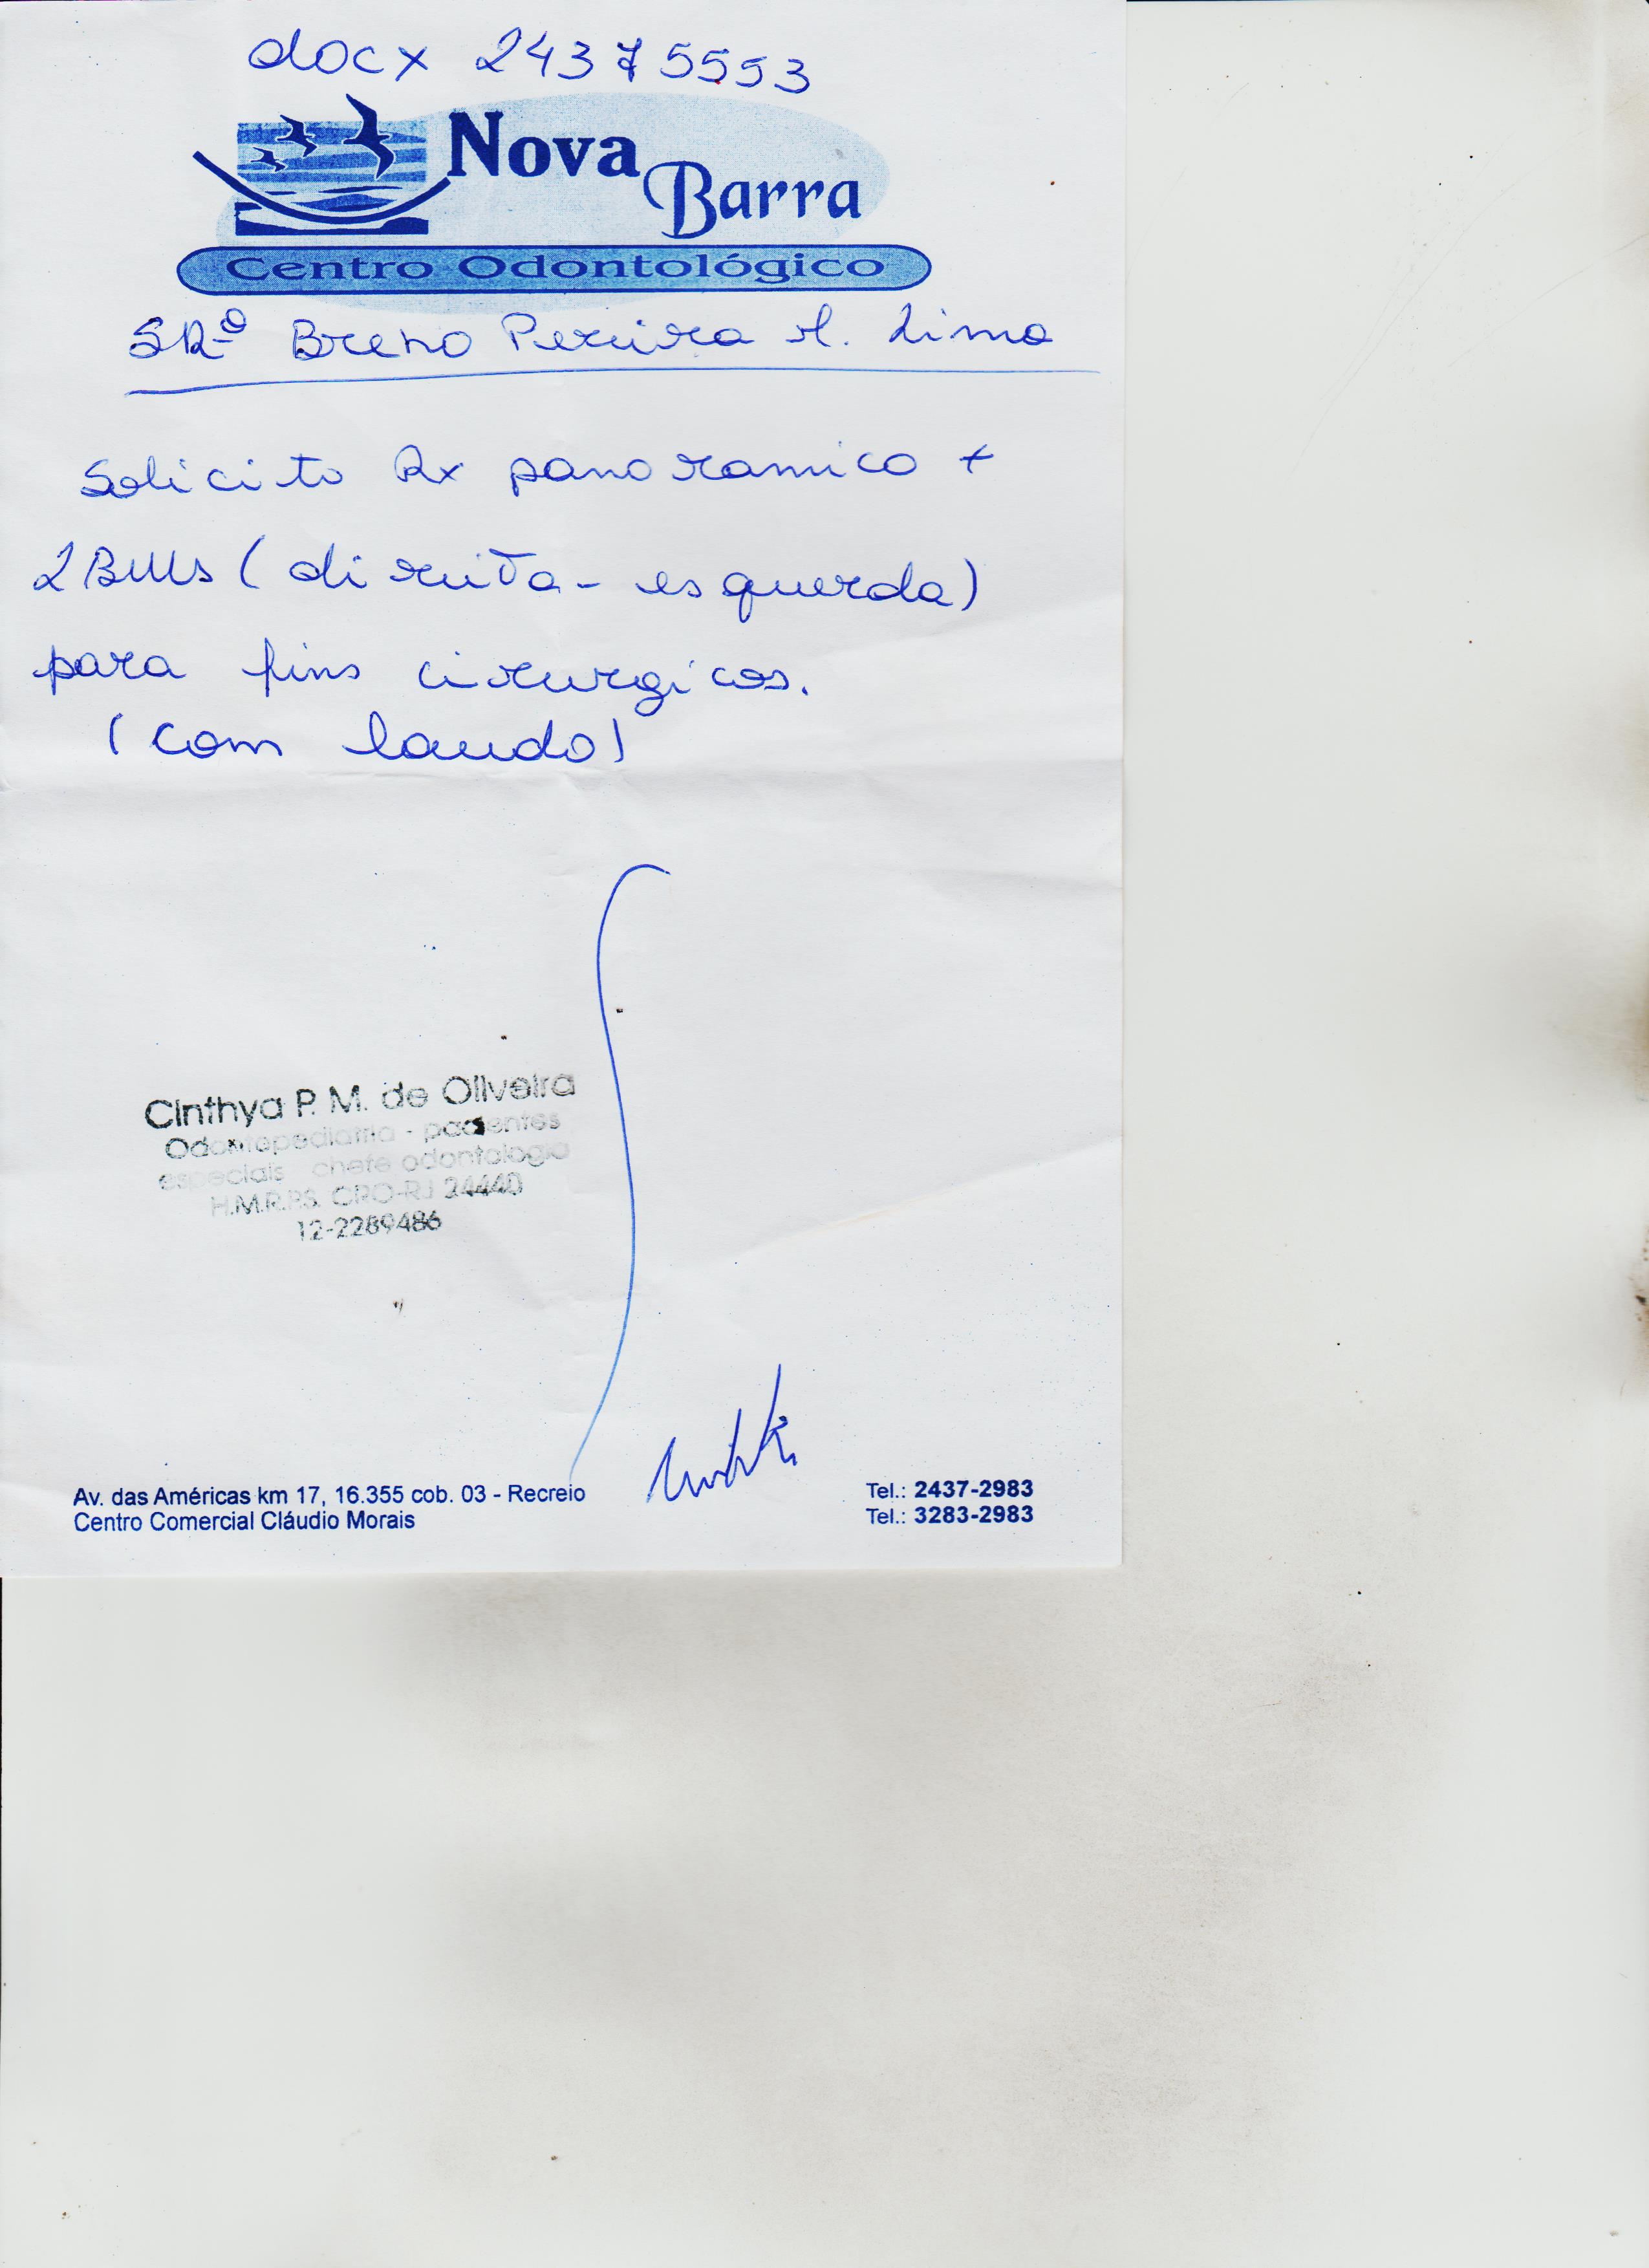 docx 24375553
Nova
Barra
Centro Odontológico
SRº Breno Pereira A. Lima
Solicito Rx panoramico +
2 BWs (direita - esquerda)
para fins cirurgicos.
(com laudo)
Cinthya P. M. de Oliveira
Odontopediatria - pacientes
especiais chefe odontologia
H.M.R.P.S. CRO-RJ 24440
12-2289486
Av. das Américas km 17, 16.355 cob. 03 - Recreio
Centro Comercial Cláudio Morais
Tel.: 2437-2983
Tel.: 3283-2983